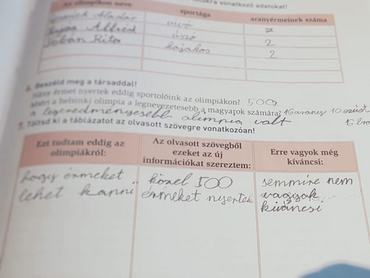 Az olimpikon neve sportága aranyérmeinek száma
vívó
Alfréd úszó 2
Rita kajakos 2
6. Beszéld meg a társaddal!
Hány érmet nyertek eddig sportolóink az olimpiákon? 500
Miért a helsinki olimpia a legnevezetesebb a magyarok számára? 16 arany 10 ezüst
a legeredményesebb olimpia volt
7. Töltsd ki a táblázatot az olvasott szövegre vonatkozóan!
Ezt tudtam eddig az olimpiákról:
Az olvasott szövegből ezeket az új információkat szereztem:
Erre vagyok még kíváncsi:
hogy érmeket lehet kapni
közel 500 érmeket nyertek
semmire nem vagyok kíváncsi